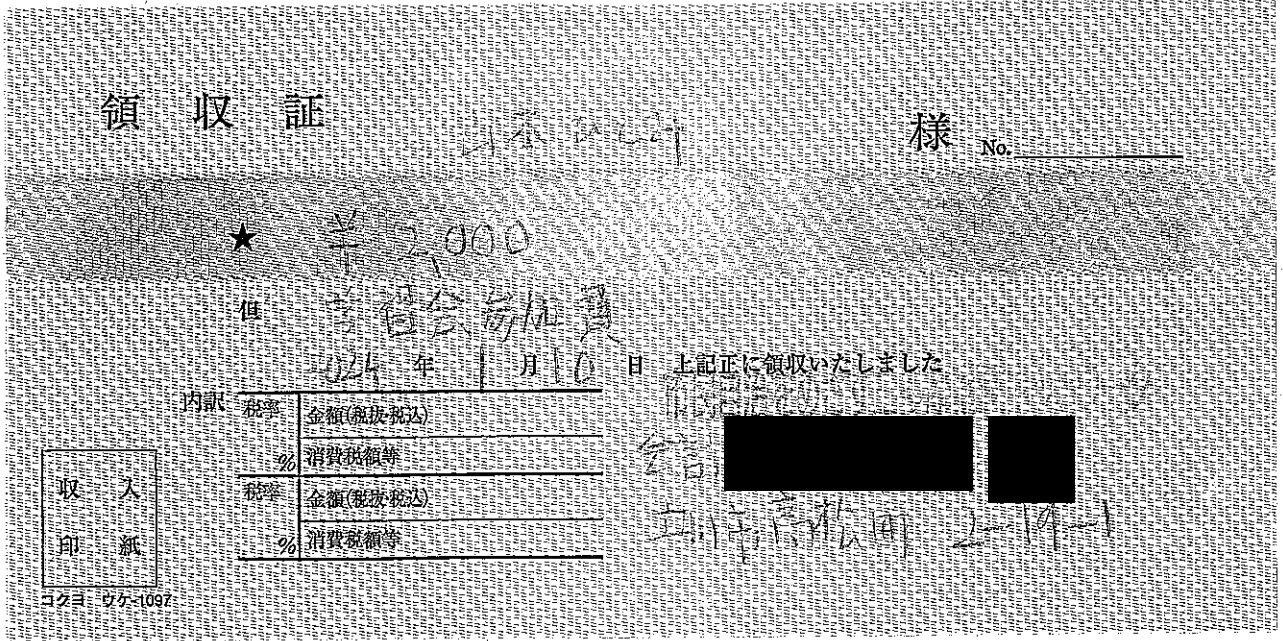 領収証 様 No.
★ ¥2,000
但 学習会参加費
2024年1月10日 上記正に領収いたしました
内訳
税率 金額(税抜・税込)
% 消費税額等
税率 金額(税抜・税込)
% 消費税額等
会計
立川市高松町 2-19-1
収入
印紙
コクヨ ウケ-1097